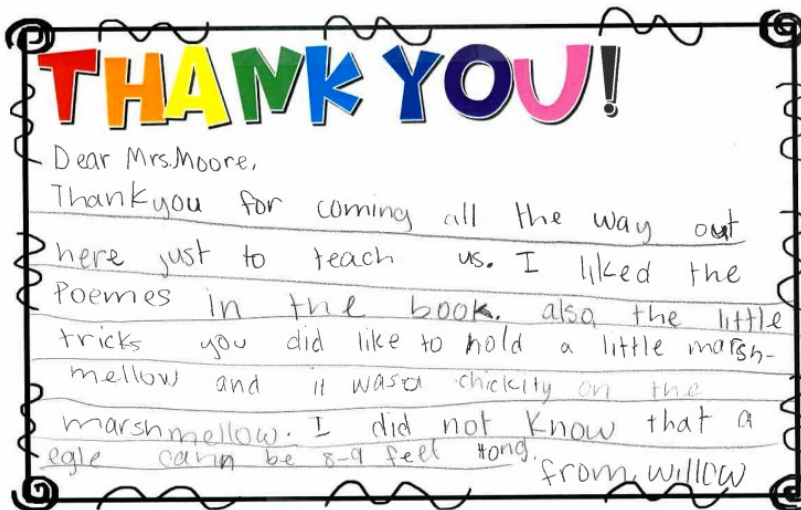 THANK YOU!
Dear Mrs. Moore,
Thankyou for coming all the way out
here just to teach us. I liked the
Poemes in the book. also the little
tricks you did like to hold a little marsh-
mellow and it was a on the
marshmellow. I did not know that a
egle cann be 8-9 feet long.
from, Willow